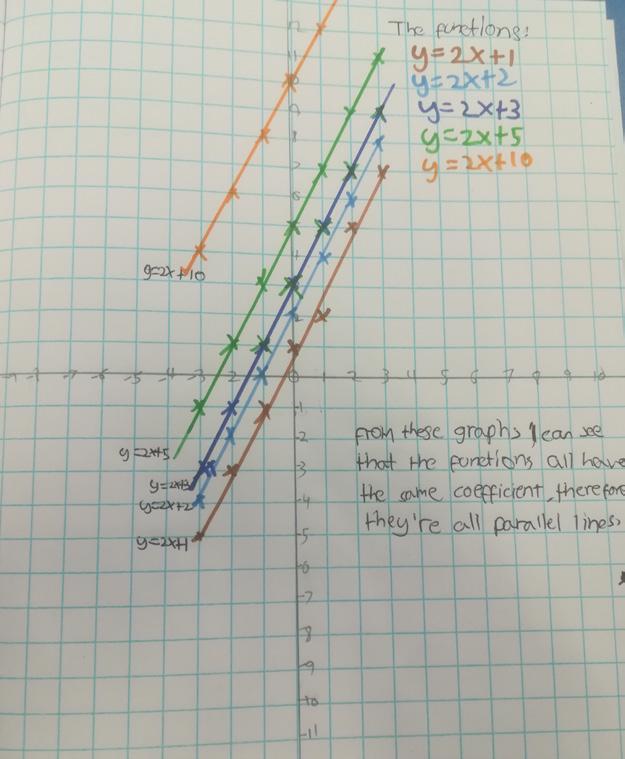 The functions:
y=2x+1
y=2x+2
y=2x+3
y=2x+5
y=2x+10
12
11
10
9
8
7
6
y=2x+10
-3
-2
0
1
2
3
4
5
6
7
8
9
10
-1
-2
-3
-4
-5
-6
-7
-8
-9
-10
-11
y=2x+5
y=2x+3
y=2x+2
y=2x+1
from these graphs, I can see
that the functions all have
the same coefficient, therefore
they're all parallel lines.